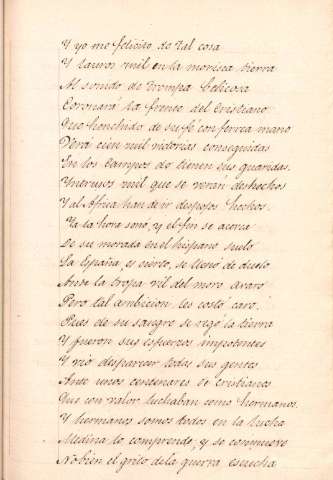 Y yo me felicito de tal cosa
Y lauros mil en la morisca tierra
Al sonido de trompa belicosa
Coronará la frente del Cristiano
Que henchido de su fé con ferrea mano
Verá cien mil victorias conseguidas
En los campos do tienen sus guaridas.
Y mil que se verán deshechos
Y al Africa han de ir despojos hechos.
Ya la hora sonó, y el fin se acerca
De su morada en el hispano suelo
La España, es cierto, se llenó de duelo
Ante la tropa vil del moro avaro
Pero tal ambicion les costó caro.
Pues de su sangre se regó la tierra
Y fueron sus esfuerzos impotentes
Y vió desparecer todas sus gentes
Ante unos centenares de cristianos
Que con valor luchaban como hermanos.
Y hermanos somos todos en la lucha
Medina lo comprende, y se conmueve
No bien el grito de la guerra escucha